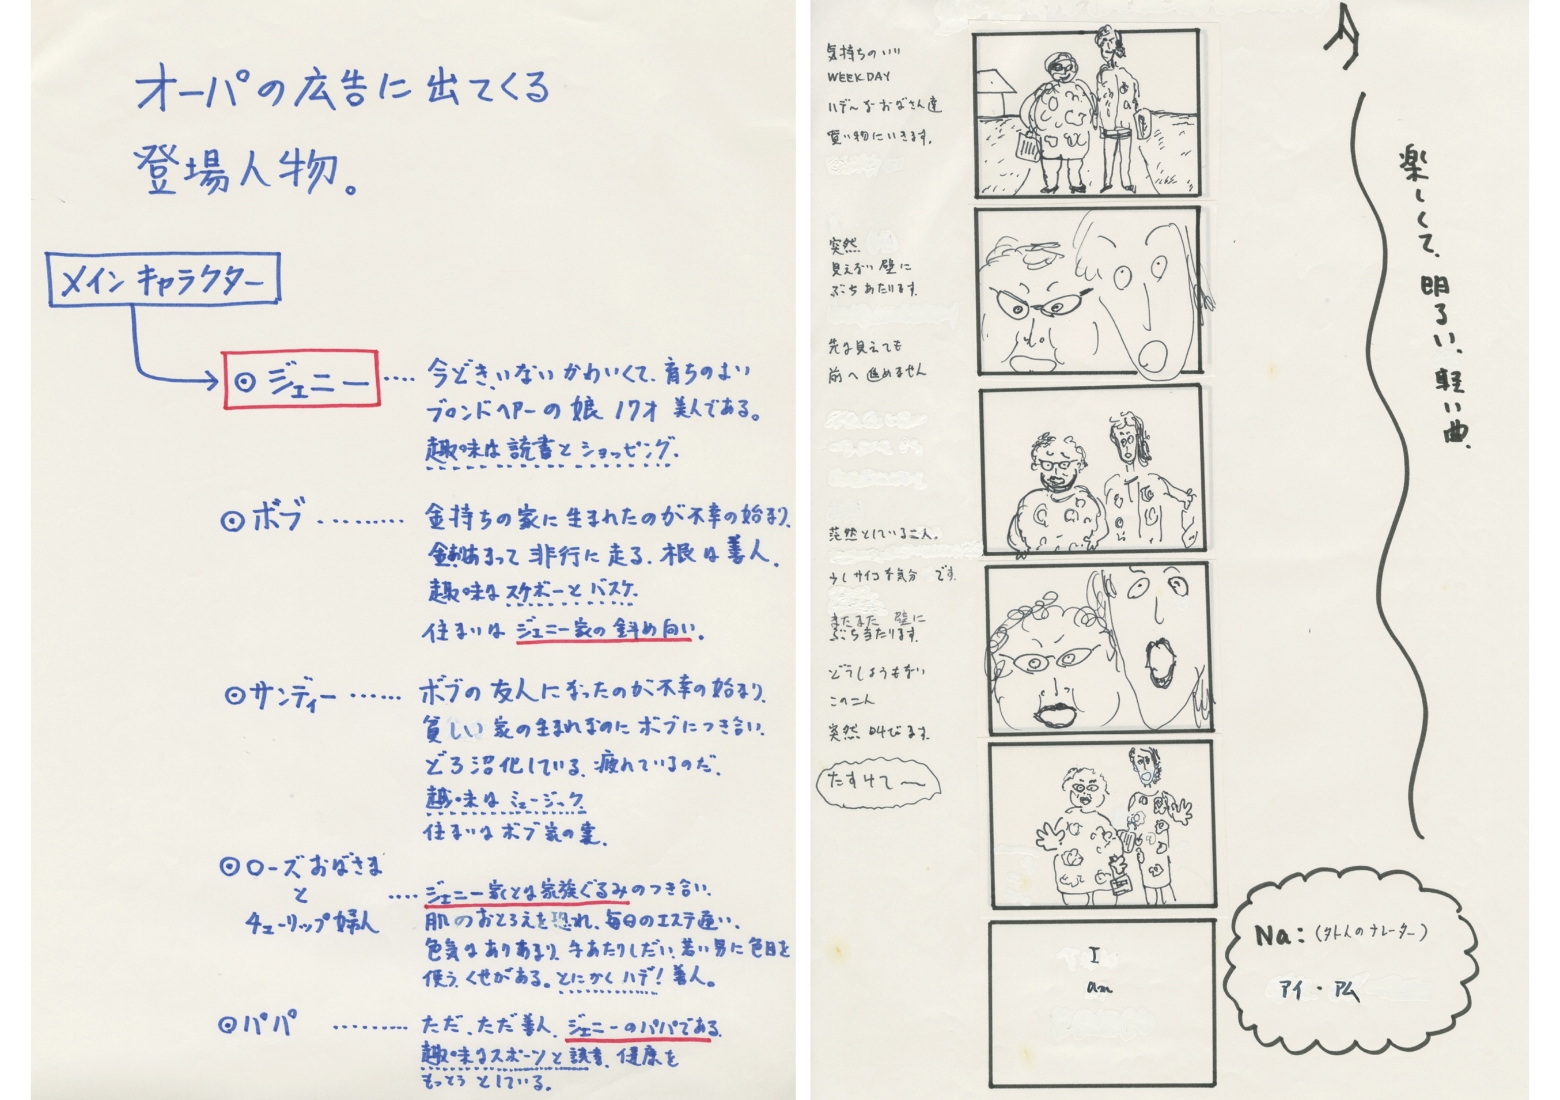 オーパの広告に出てくる
登場人物。
メインキャラクター
◎ジェニー‥‥今どき、いないかわいくて、育ちのよい
ブロンドヘアーの娘 17才 美人である。
趣味は読書とショッピング。
◎ボブ‥‥‥‥‥金持ちの家に生まれたのが不幸の始まり、
あまって非行に走る、根は善人。
趣味はスケボーとバスケ。
住まいはジェニー家の斜め向い。
◎サンディー‥‥‥ボブの友人になったのが不幸の始まり。
貧しい家の生まれなのにボブにつき合い、
どろ沼化している。疲れているのだ。
趣味はミュージック
住まいはボブ家の裏。
◎ローズおばさま
と
チューリップ婦人
‥‥ジェニー家とは家族ぐるみのつき合い。
肌のおとろえを恐れ、毎日のエステ通い、
色気はありあまり、手あたりしだい、若い男に色目を
使う、くせがある。とにかくハデ!善人。
◎パパ‥‥‥‥‥ただ、ただ善人、ジェニーのパパである。
趣味はスポーツと読書、健康を
もっとうとしている。
気持ちのいい
WEEKDAY
ハデ〜なおばさん達
買い物にいきます。
突然
見えない壁に
ぶちあたります。
先は見えても
前へ進めません
茫然としている二人。
少しサイコな気分です。
またまた壁に
ぶち当たります。
どうしようもない
この二人
突然叫びます。
たすけて〜
I
am
楽しくて、明るい、軽い曲。
Na:(外人のナレーター)
アイ・アム